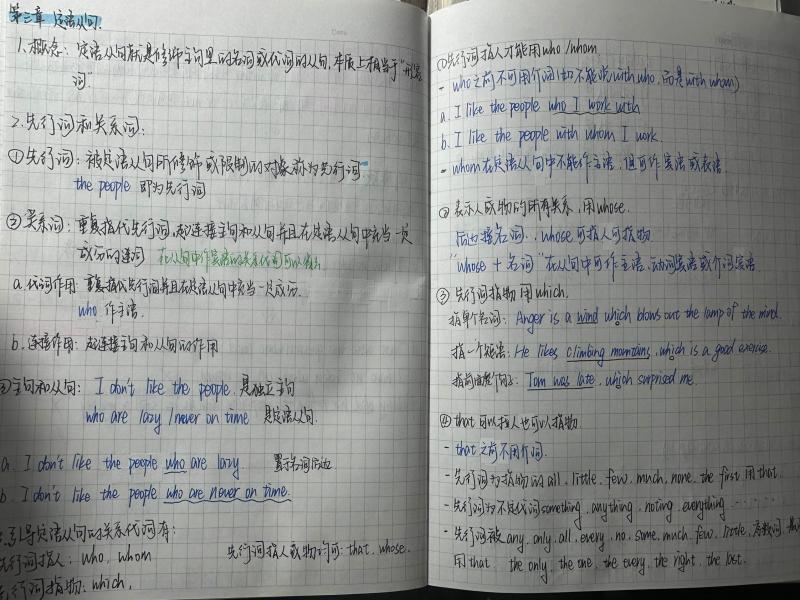 第三章 定语从句.
1.概念: 定语从句就是修饰主句里的名词或代词的从句,本质上相当于"形容
词".
2.先行词和关系词:
①先行词: 被定语从句所修饰或限制的对象称为先行词
the people 即为先行词
②关系词: 重复指代先行词,起连接主句和从句并且在定语从句中充当一定
成分的连词 在从句中作宾语的关系代词可以省略
a.代词作用: 重复指代先行词并且在定语从句中充当一定成分.
who 作主语.
b.连接作用: 起连接主句和从句的作用
③主句和从句: I don't like the people. 是独立主句
who are lazy / never on time 是定语从句.
a. I don't like the people who are lazy. 置于名词后边
b. I don't like the people who are never on time.
引导定语从句的关系代词有:
先行词指人: who, whom 先行词指人或物均可: that, whose.
先行词指物: which,
①先行词指人才能用who / whom
- who之前不可用介词(如不能说with who, 而是with whom)
a. I like the people who I work with
b. I like the people with whom I work.
- whom在定语从句中不能作主语,但可作宾语或表语.
② 表示人或物的所有关系,用whose.
后边接名词., whose可指人可指物
"whose + 名词"在从句中可作主语、动词宾语或介词宾语
③ 先行词指物用which.
指单个名词: Anger is a wind which blows out the lamp of the mind.
指一个短语: He likes climbing mountains, which is a good exercise.
指前面整个句子: Tom was late, which surprised me.
④ that可以指人也可以指物.
- that之前不用介词.
- 先行词为指物的all, little, few, much, none, the first 用that.
- 先行词为不定代词something, anything, noting, everything ......
- 先行词被any, only, all, every, no, some, much, few, little, 序数词,
用that. the only, the one, the every, the right, the last.